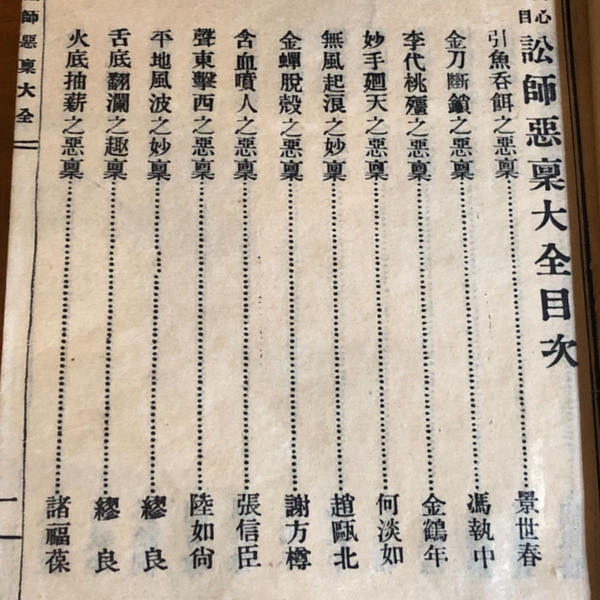 心
目
訟師惡稟大全目次
引魚吞餌之惡稟 景世春
金刀斷鎖之惡稟 馮執中
李代桃殭之惡稟 金鶴年
妙手廻天之惡稟 何淡如
無風起浪之妙稟 趙甌北
金蟬脫殼之惡稟 謝方樽
含血噴人之惡稟 張信臣
聲東擊西之惡稟 陸如尙
平地風波之妙稟 繆良
舌底翻瀾之趣稟 繆良
火底抽薪之惡稟 諸福葆
師惡稟大全
一